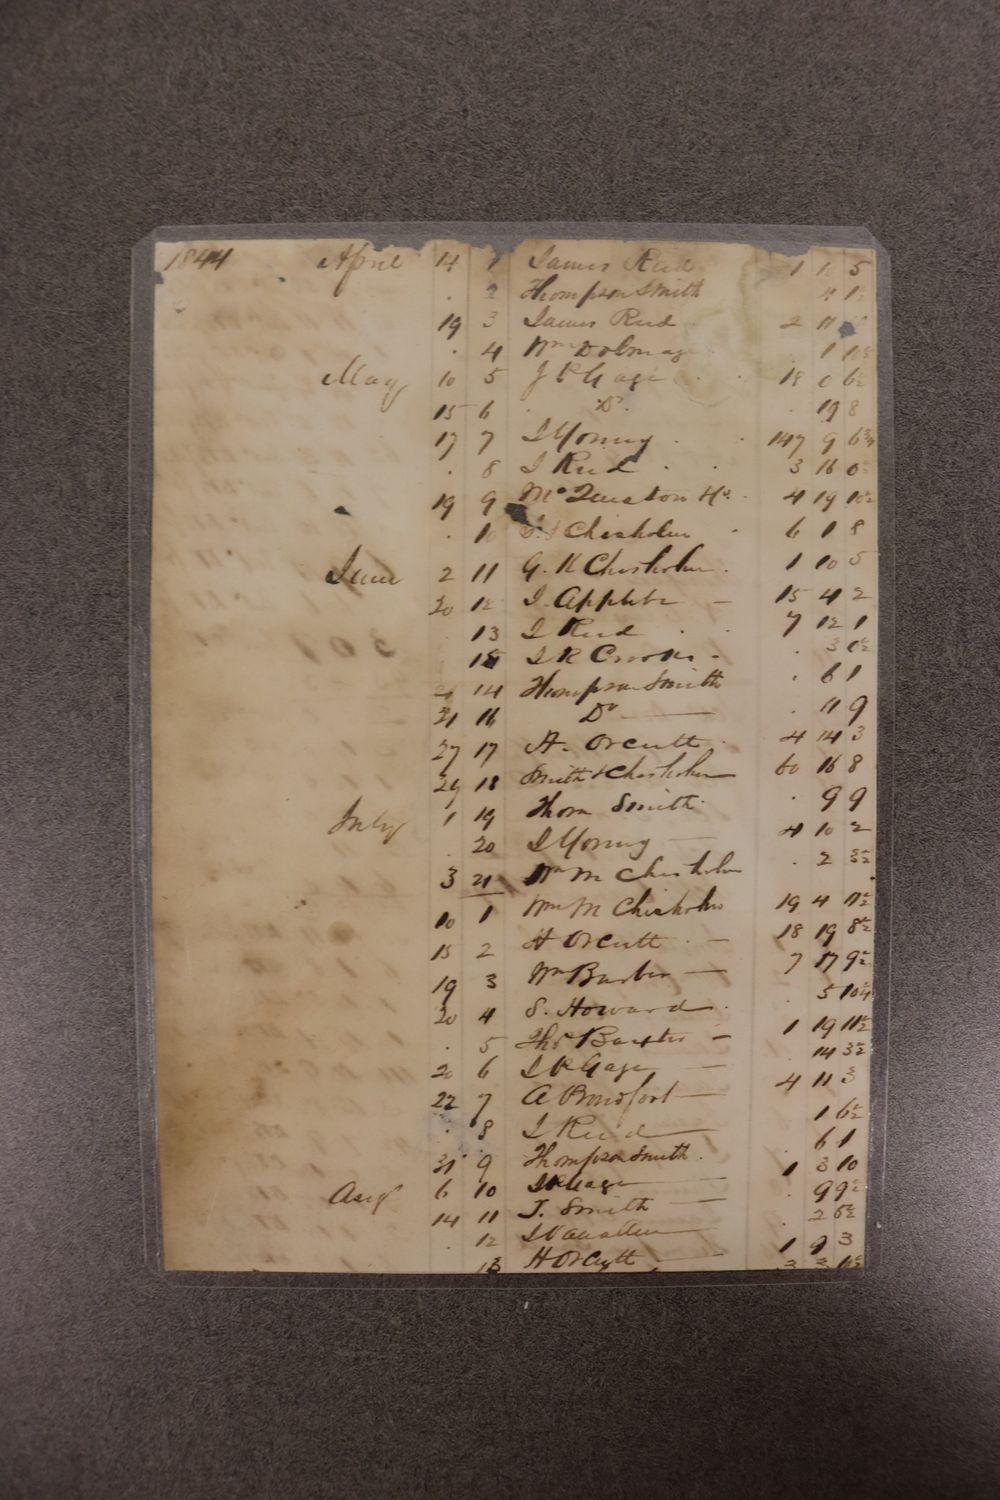 1844 April 14 1 James Reid 1 10 5
. 2 Thompson Smith 4 1½
19 3 James Reid 2 11
. 4 Wm Dolmage . 1 10½
May 10 5 J R Gage . . 18 0 6½
15 6 . Do . 19 8
17 7 J Young . . 147 9 6¾
. 8 J Reid . . 3 16 0½
19 9 McQueston & Co . 4 19 10½
. 10 Chisholm . 6 1 8
June 2 11 G. K Chisholm . 1 10 5
20 12 J. Applebe — 15 4 2
. 13 J Reid . . 7 12 1
15 J R Crooks . . 3 0½
21 14 Thompson Smith . 6 1
21 16 Do — . 11 9
27 17 A. Orcutt . 4 14 3
29 18 Smith & Chisholm — 60 16 8
July 1 19 Thom Smith . . 9 9
. 20 J Young — 4 10 2
3 21 Wm M Chisholm . 2 3½
10 1 Wm M Chisholm 19 4 11½
15 2 H Orcutt . — 18 19 8½
19 3 Wm Barber — 7 17 9½
20 4 S. Howard . . 5 10¼
. 5 Thos Baxter — 1 19 11½
20 6 J R Gage — . 14 3½
22 7 A Bradfort — 4 11 3
. 8 J Reid — . 1 6½
31 9 Thompson Smith . . 6 1
Aug 6 10 J R Gage — 1 3 10
14 11 T. Smith — . 9 9½
. 12 — . 2 6½
13 H Orcutt — 1 9 3
3 3 11½